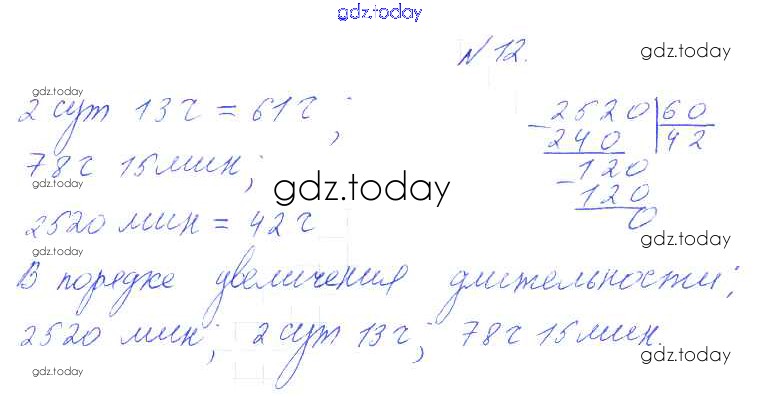 gdz.today
N 12.
gdz.today
gdz.today
2 сут 13 ч = 61 ч;
78 ч 15 мин;
gdz.today
2520 мин = 42 ч
2520 | 60
240 | 42
120
120
0
gdz.today
gdz.today
gdz.today
gdz.today
В порядке увеличения длительности;
gdz.today
2520 мин; 2 сут 13 ч; 78 ч 15 мин.
gdz.today
gdz.today